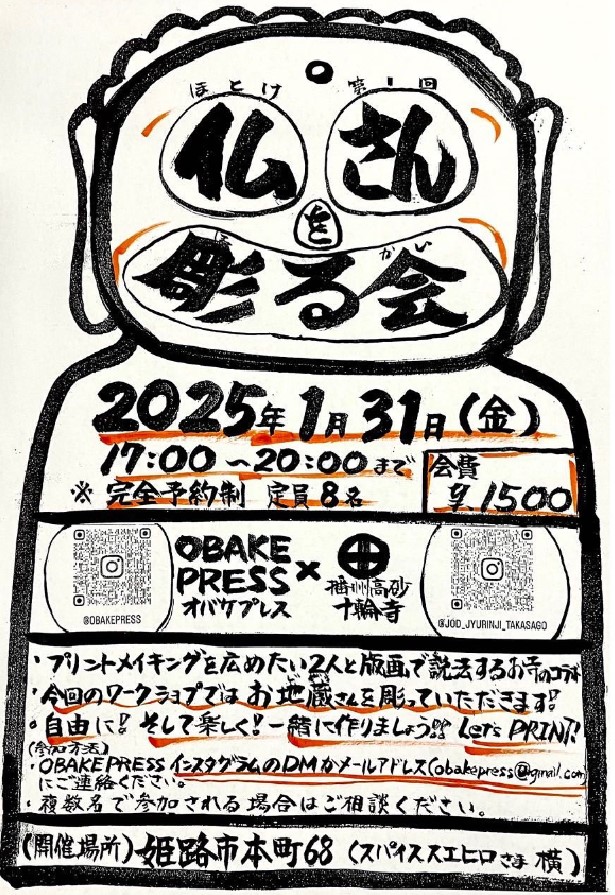 ほとけ 第1回
仏さん
を
かい
彫る会
2025年1月31日(金)
17:00~20:00まで
会費
¥.1500
※完全予約制 定員8名
OBAKE
PRESS
オバケプレス
×
播州高砂
十輪寺
@OBAKEPRESS
@JODO_JYURINJI_TAKASAGO
・プリントメイキングを広めたい2人と版画で説法するお寺のコラボ
・今回のワークショップではお地蔵さんを彫っていただきます!!
・自由に!そして楽しく!一緒に作りましょう!! Let's PRINT!
(参加方法)
・OBAKEPRESSインスタグラムのDMかメールアドレス(obakepress@gmail.com)
にご連絡ください。
・複数名で参加される場合はご相談ください。
(開催場所)姫路市本町68(スパイススエヒロさま横)